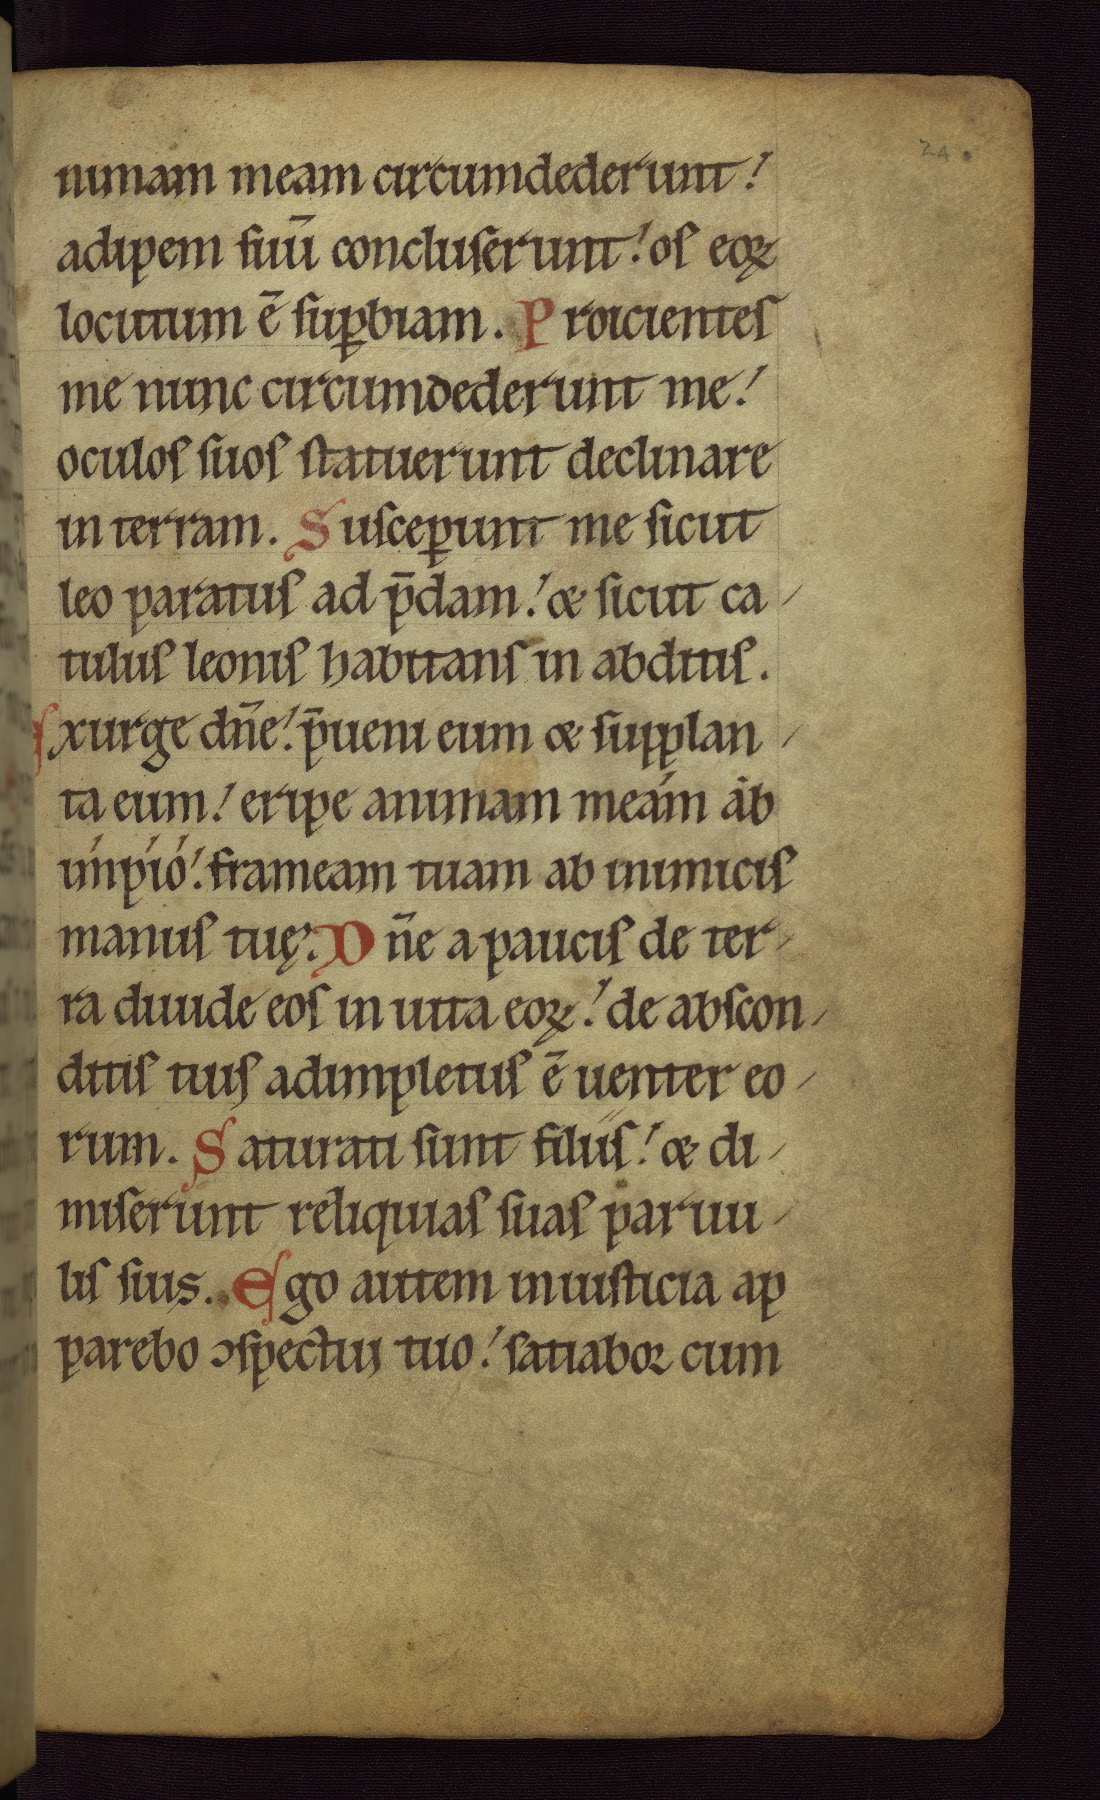 24
nimam meam circumdederunt!
adipem suū concluserunt! os eoꝝ
locutum ē suꝑbiam. Proicientes
me nunc circumdederunt me!
oculos suos statuerunt declinare
in terram. Susceꝑunt me sicut
leo paratus ad p̄dam! & sicut ca-
tulus leonis habitans in abditis.
Exurge dn̄e! p̄ueni eum & supplan-
ta eum! eripe animam meam ab
impio! frameam tuam ab inimicis
manus tuę. Dn̄e a paucis de ter-
ra diuide eos in uita eoꝝ! de abscon-
ditis tuis adimpletus ē uenter eo-
rum. Saturati sunt filiis! & di-
miserunt reliquias suas paruu-
lis suis. Ego autem in iusticia ap
parebo ꝯspectui tuo! satiabor cum